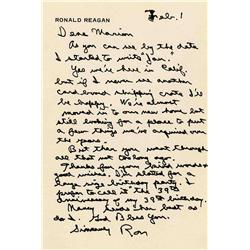 RONALD REAGAN
Feb. 1
Dear Marion
As you can see by the date
I started to write "Jan".
Yes we're here in Calif.
but if I never see another
card board shipping crate I'll
be happy. We're almost
moved in to our new home but
still looking for a place to put
a few things we've acquired over
the years.
But then you went through
all that not too long ago.
Thanks for your kind words &
good wishes. I'm slated for a
large birthday party. I
prefer to call it the 39th
anniversary of my 39th birthday.
Nancy sends her best as
do I. God Bless You.
Sincerely Ron